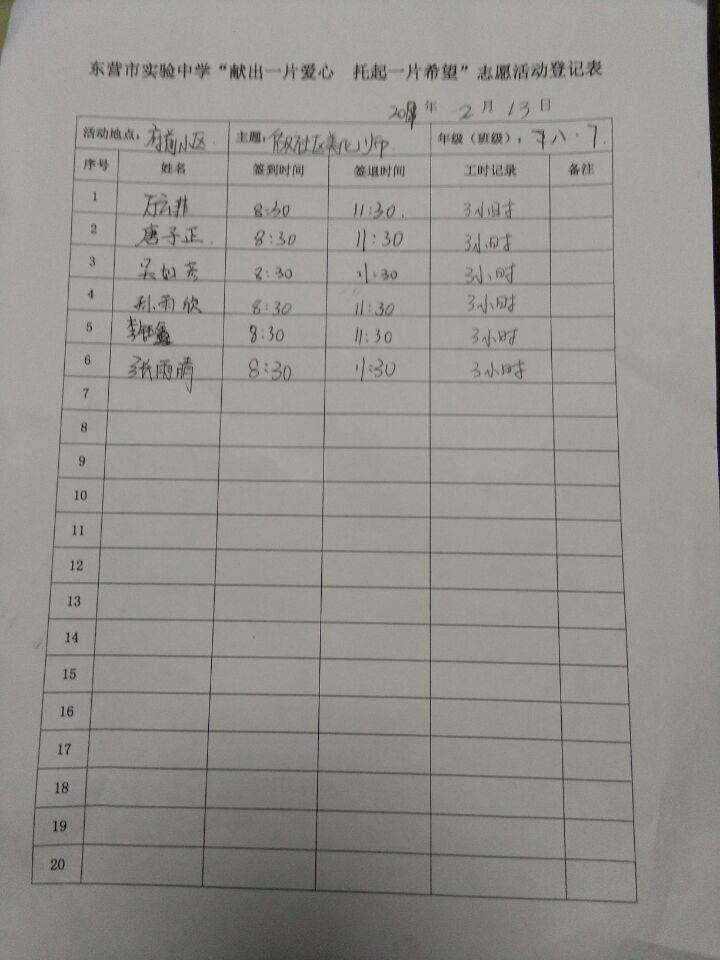 东营市实验中学“献出一片爱心 托起一片希望”志愿活动登记表
年 2 月 13 日
活动地点：府前小区 主题：做社区美化师 年级（班级）：八·7
序号 姓名 签到时间 签退时间 工时记录 备注
1 万云菲 8:30 11:30. 3小时
2 唐子正 8:30 11:30 3小时
3 吴如 8:30 11:30 3小时
4 孙雨欣 8:30 11:30 3小时
5 李 8:30 11:30 3小时
6 张雨晴 8:30 11:30 3小时
7
8
9
10
11
12
13
14
15
16
17
18
19
20